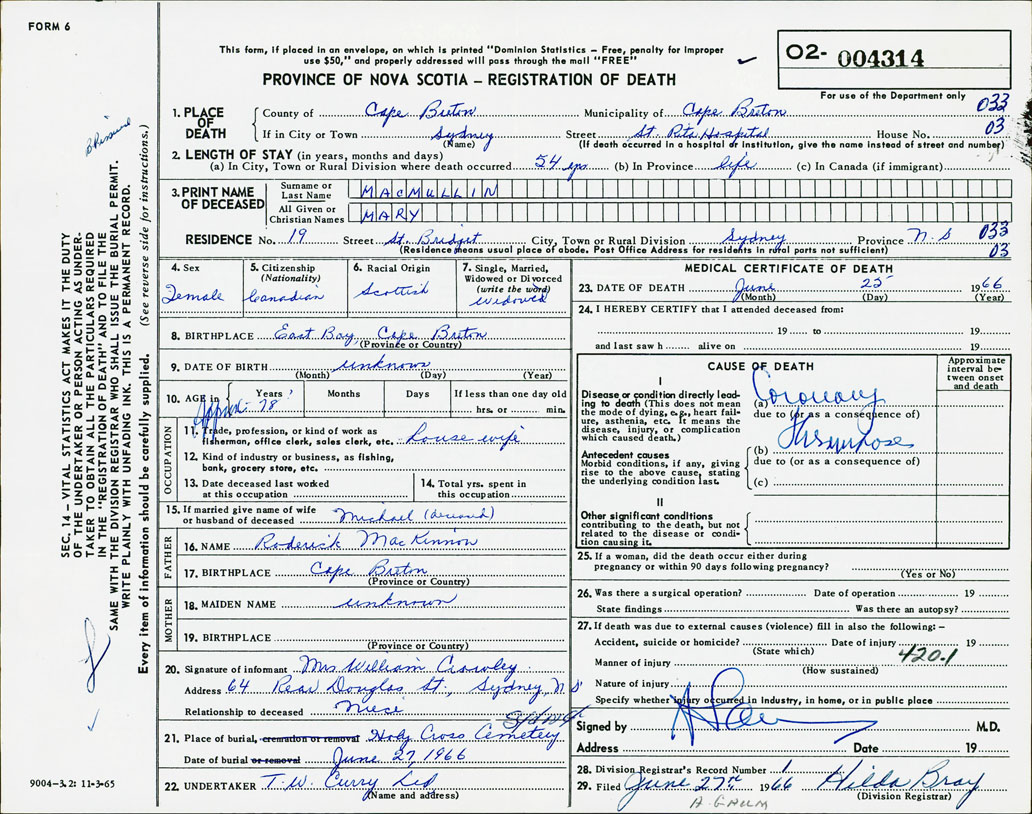 FORM 6
This form, if placed in an envelope, on which is printed "Dominion Statistics – Free, penalty for improper
use $50," and properly addressed will pass through the mail "FREE"
PROVINCE OF NOVA SCOTIA – REGISTRATION OF DEATH
02- 004314
For use of the Department only
033
03
1. PLACE OF DEATH
County of Cape Breton Municipality of Cape Breton
If in City or Town Sydney Street St. Rita Hospital House No.
(Name) (If death occurred in a hospital or institution, give the name instead of street and number)
2. LENGTH OF STAY (in years, months and days)
(a) In City, Town or Rural Division where death occurred 54 yrs (b) In Province life (c) In Canada (if immigrant)
3. PRINT NAME OF DECEASED
Surname or Last Name MACMULLIN
All Given or Christian Names MARY
RESIDENCE No. 19 Street St. Bridget City, Town or Rural Division Sydney Province N.S 033
(Residence means usual place of abode. Post Office Address for residents in rural parts not sufficient) 03
4. Sex
Female
5. Citizenship
(Nationality)
Canadian
6. Racial Origin
Scottish
7. Single, Married,
Widowed or Divorced
(write the word)
widowed
8. BIRTHPLACE East Bay, Cape Breton
(Province or Country)
9. DATE OF BIRTH unknown
(Month) (Day) (Year)
10. AGE in Years Months Days If less than one day old
Approx. 78 hrs. or min.
OCCUPATION
11. Trade, profession, or kind of work as
fisherman, office clerk, sales clerk, etc. house wife
12. Kind of industry or business, as fishing,
bank, grocery store, etc.
13. Date deceased last worked
at this occupation
14. Total yrs. spent in
this occupation
15. If married give name of wife
or husband of deceased Michael (deceased)
FATHER
16. NAME Roderick MacKinnon
17. BIRTHPLACE Cape Breton
(Province or Country)
MOTHER
18. MAIDEN NAME unknown
19. BIRTHPLACE
(Province or Country)
20. Signature of informant Mrs William Crowley
Address 64 Rear Douglas St., Sydney, N S
Relationship to deceased niece
Sydney
21. Place of burial, cremation or removal Holy Cross Cemetery
Date of burial or removal June 27, 1966
22. UNDERTAKER T. W. Curry Ltd
(Name and address)
MEDICAL CERTIFICATE OF DEATH
23. DATE OF DEATH June 25 1966
(Month) (Day) (Year)
24. I HEREBY CERTIFY that I attended deceased from:
19 to 19
and last saw h alive on 19
CAUSE OF DEATH
Approximate interval between onset and death
I
Disease or condition directly leading to death (This does not mean the mode of dying, e.g., heart failure, asthenia, etc. It means the disease, injury, or complication which caused death.)
(a) Coronary
due to (or as a consequence of)
Antecedent causes
Morbid conditions, if any, giving rise to the above cause, stating the underlying condition last.
(b) Thrombosis
due to (or as a consequence of)
(c)
II
Other significant conditions
contributing to the death, but not
related to the disease or condition causing it.
25. If a woman, did the death occur either during
pregnancy or within 90 days following pregnancy?
(Yes or No)
26. Was there a surgical operation? Date of operation 19
State findings Was there an autopsy?
27. If death was due to external causes (violence) fill in also the following:–
Accident, suicide or homicide? Date of injury 19
(State which)
420.1
Manner of injury
(How sustained)
Nature of injury
Specify whether injury occurred in industry, in home, or in public place
Signed by M.D.
Address Date 19
28. Division Registrar's Record Number 1
29. Filed June 27th 1966 Hilda Bray
(Division Registrar)
SEC. 14 – VITAL STATISTICS ACT MAKES IT THE DUTY
OF THE UNDERTAKER OR PERSON ACTING AS UNDER-
TAKER TO OBTAIN ALL THE PARTICULARS REQUIRED
IN THE "REGISTRATION OF DEATH" AND TO FILE THE
SAME WITH THE DIVISION REGISTRAR WHO SHALL ISSUE THE BURIAL PERMIT.
WRITE PLAINLY WITH UNFADING INK. THIS IS A PERMANENT RECORD.
Every item of information should be carefully supplied. (See reverse side for instructions.)
9004–3.2: 11-3-65